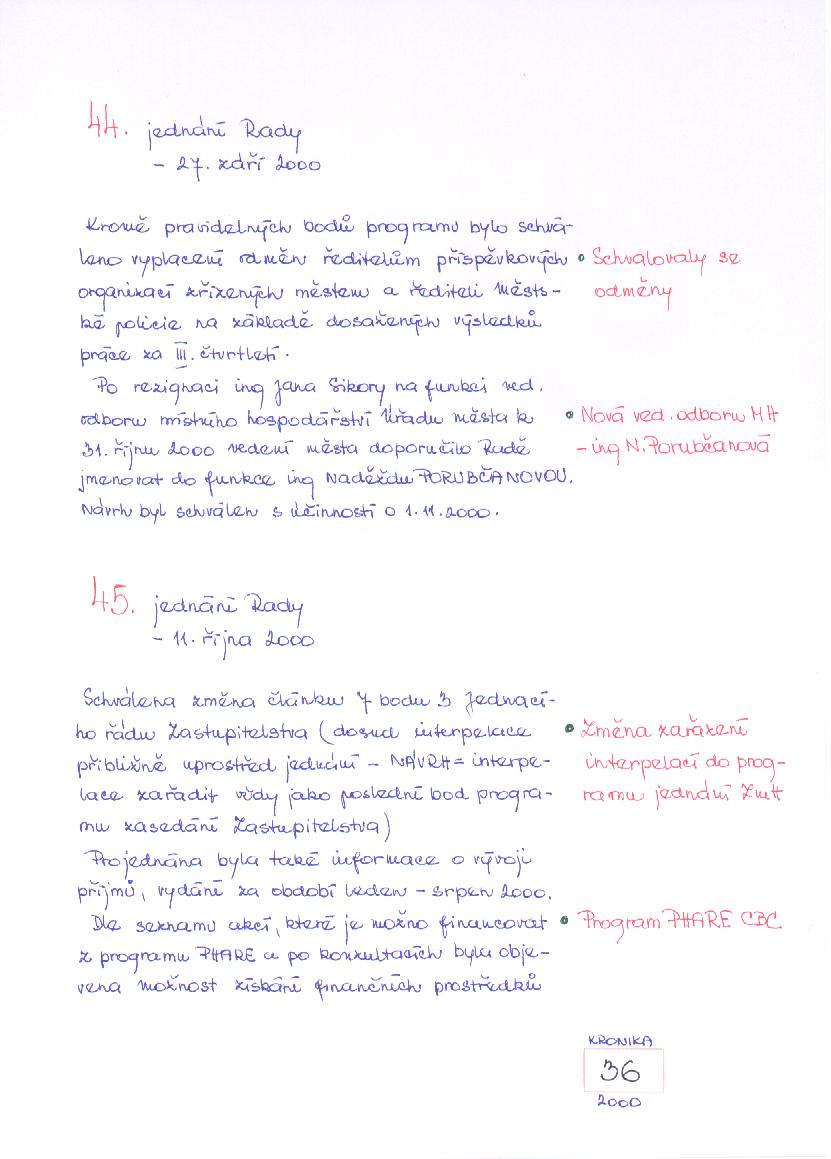 44. jednání Rady
- 27. září 2000
Kromě pravidelných bodů programu bylo schvá-
leno vyplacení odměn ředitelům příspěvkových
organizací zřízených městem a řediteli městs-
ké policie na základě dosažených výsledků
práce za III. čtvrtletí.
• Schvalovaly se
odměny
Po rezignaci ing Jana Sikory na funkci ved.
odboru místního hospodářství Úřadu města k
31. říjnu 2000 vedení města doporučilo Radě
jmenovat do funkce ing Naděždu PORUBČANOVOU.
Návrh byl schválen s účinností o 1.11.2000.
• Nová ved. odboru MH
- ing N. Porubčanová
45. jednání Rady
- 11. října 2000
Schválena změna článku 7 bodu 3 Jednací-
ho řádu Zastupitelstva (dosud interpelace
přibližně uprostřed jednání - NÁVRH = interpe-
lace zařadit vždy jako poslední bod progra-
mu zasedání Zastupitelstva)
• Změna zařazení
interpelací do prog-
ramu jednání ZmH
Projednána byla také informace o vývoji
příjmů, vydání za období leden - srpen 2000.
Dle seznamu akcí, které je možno financovat
z programu PHARE a po konzultacích byla obje-
vena možnost získání finančních prostředků
• Program PHARE CBC
KRONIKA
36
2000